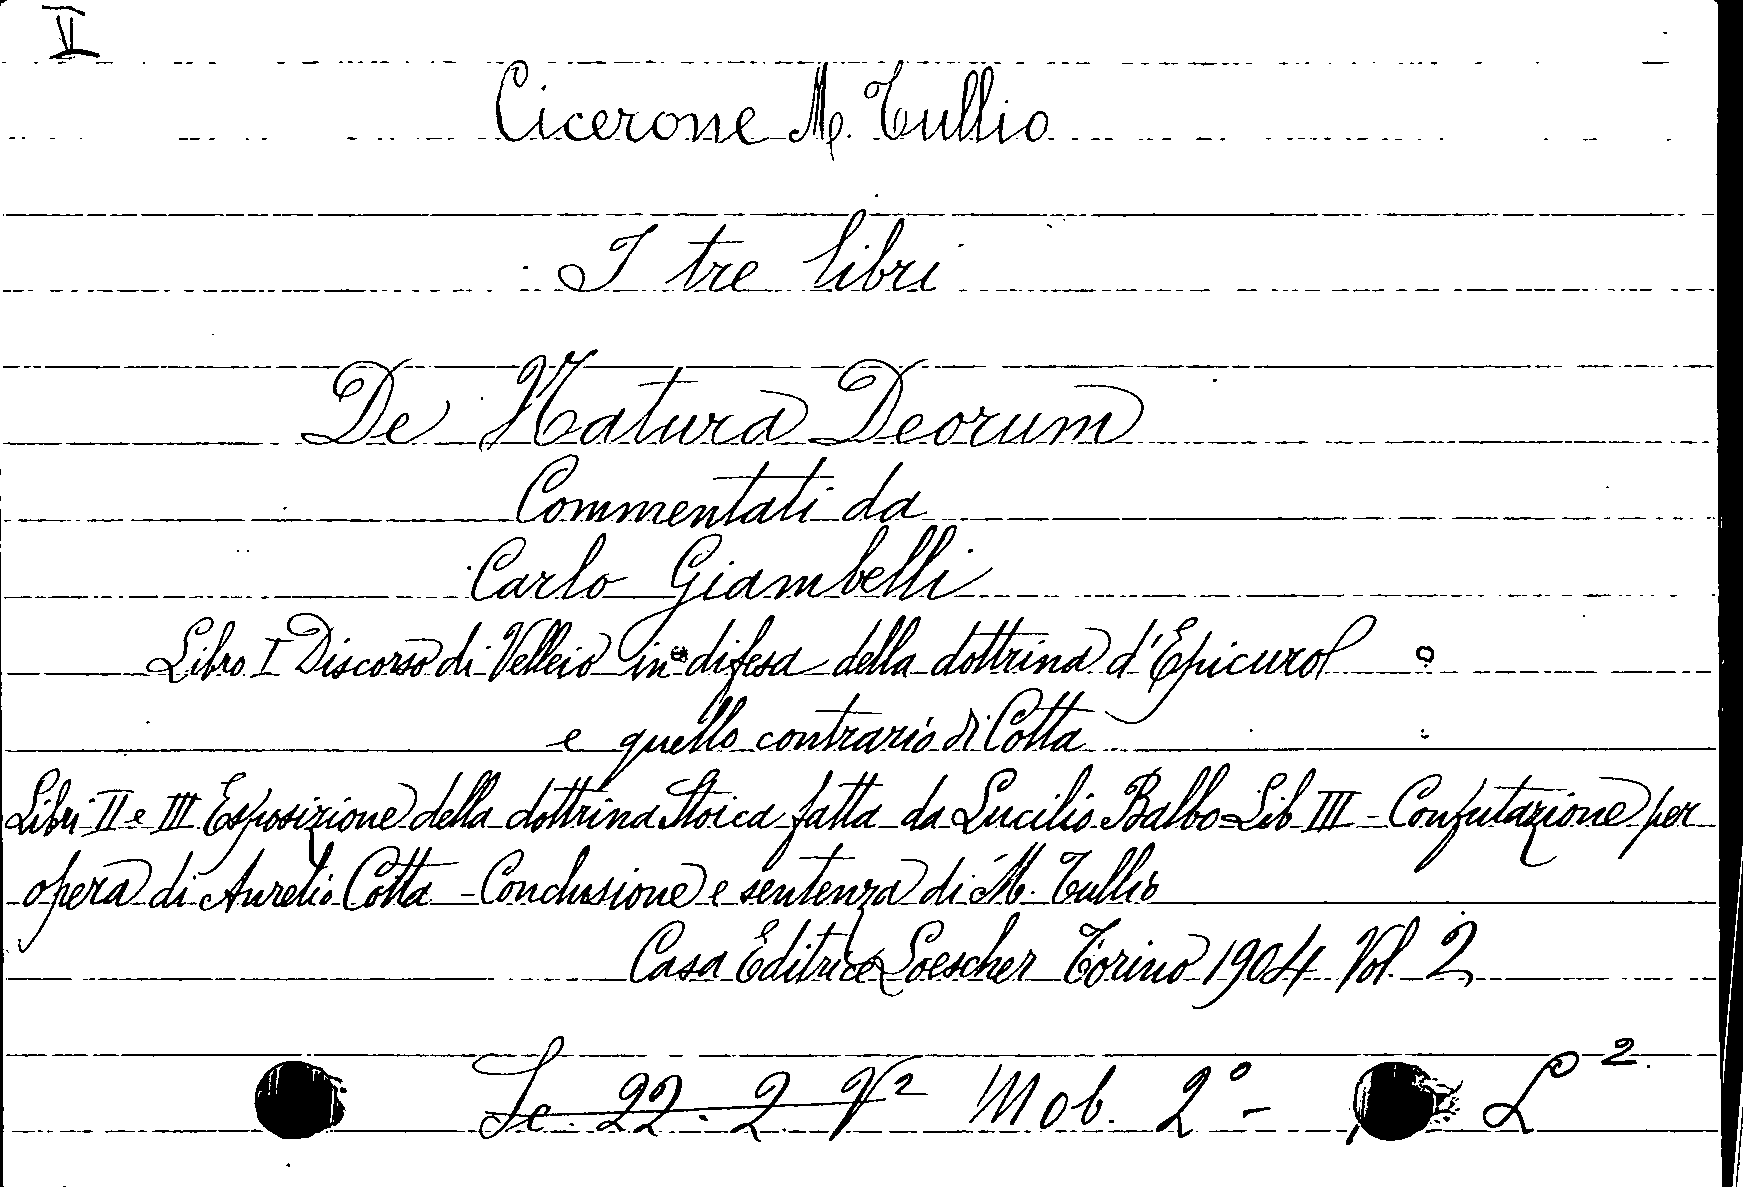 V
Cicerone M. Tullio
I tre libri
De Natura Deorum
Commentati da
Carlo Giambelli
Libro I Discorso di Velleio in difesa della dottrina d'Epicuro
e quello contrario di Cotta
Libri II e III Esposizione della dottrina Stoica fatta da Lucilio Balbo = Lib III - Confutazione per
opera di Aurelio Cotta - Conclusione e sentenza di M. Tullio
Casa Editrice Loescher Torino 1904 Vol. 2
Se. 22. 2 V² Mob. 2° - L²